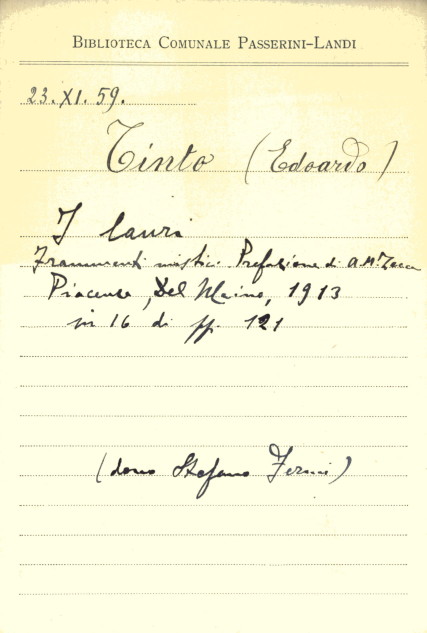 BIBLIOTECA COMUNALE PASSERINI-LANDI
23.XI.59.
Tinto (Edoardo)
I lauri
Frammenti mistici. Prefazione di A. Mª Zecca
Piacenza, Del Maino, 1913
in 16 di pp. 121
(dono Stefano Fermi)